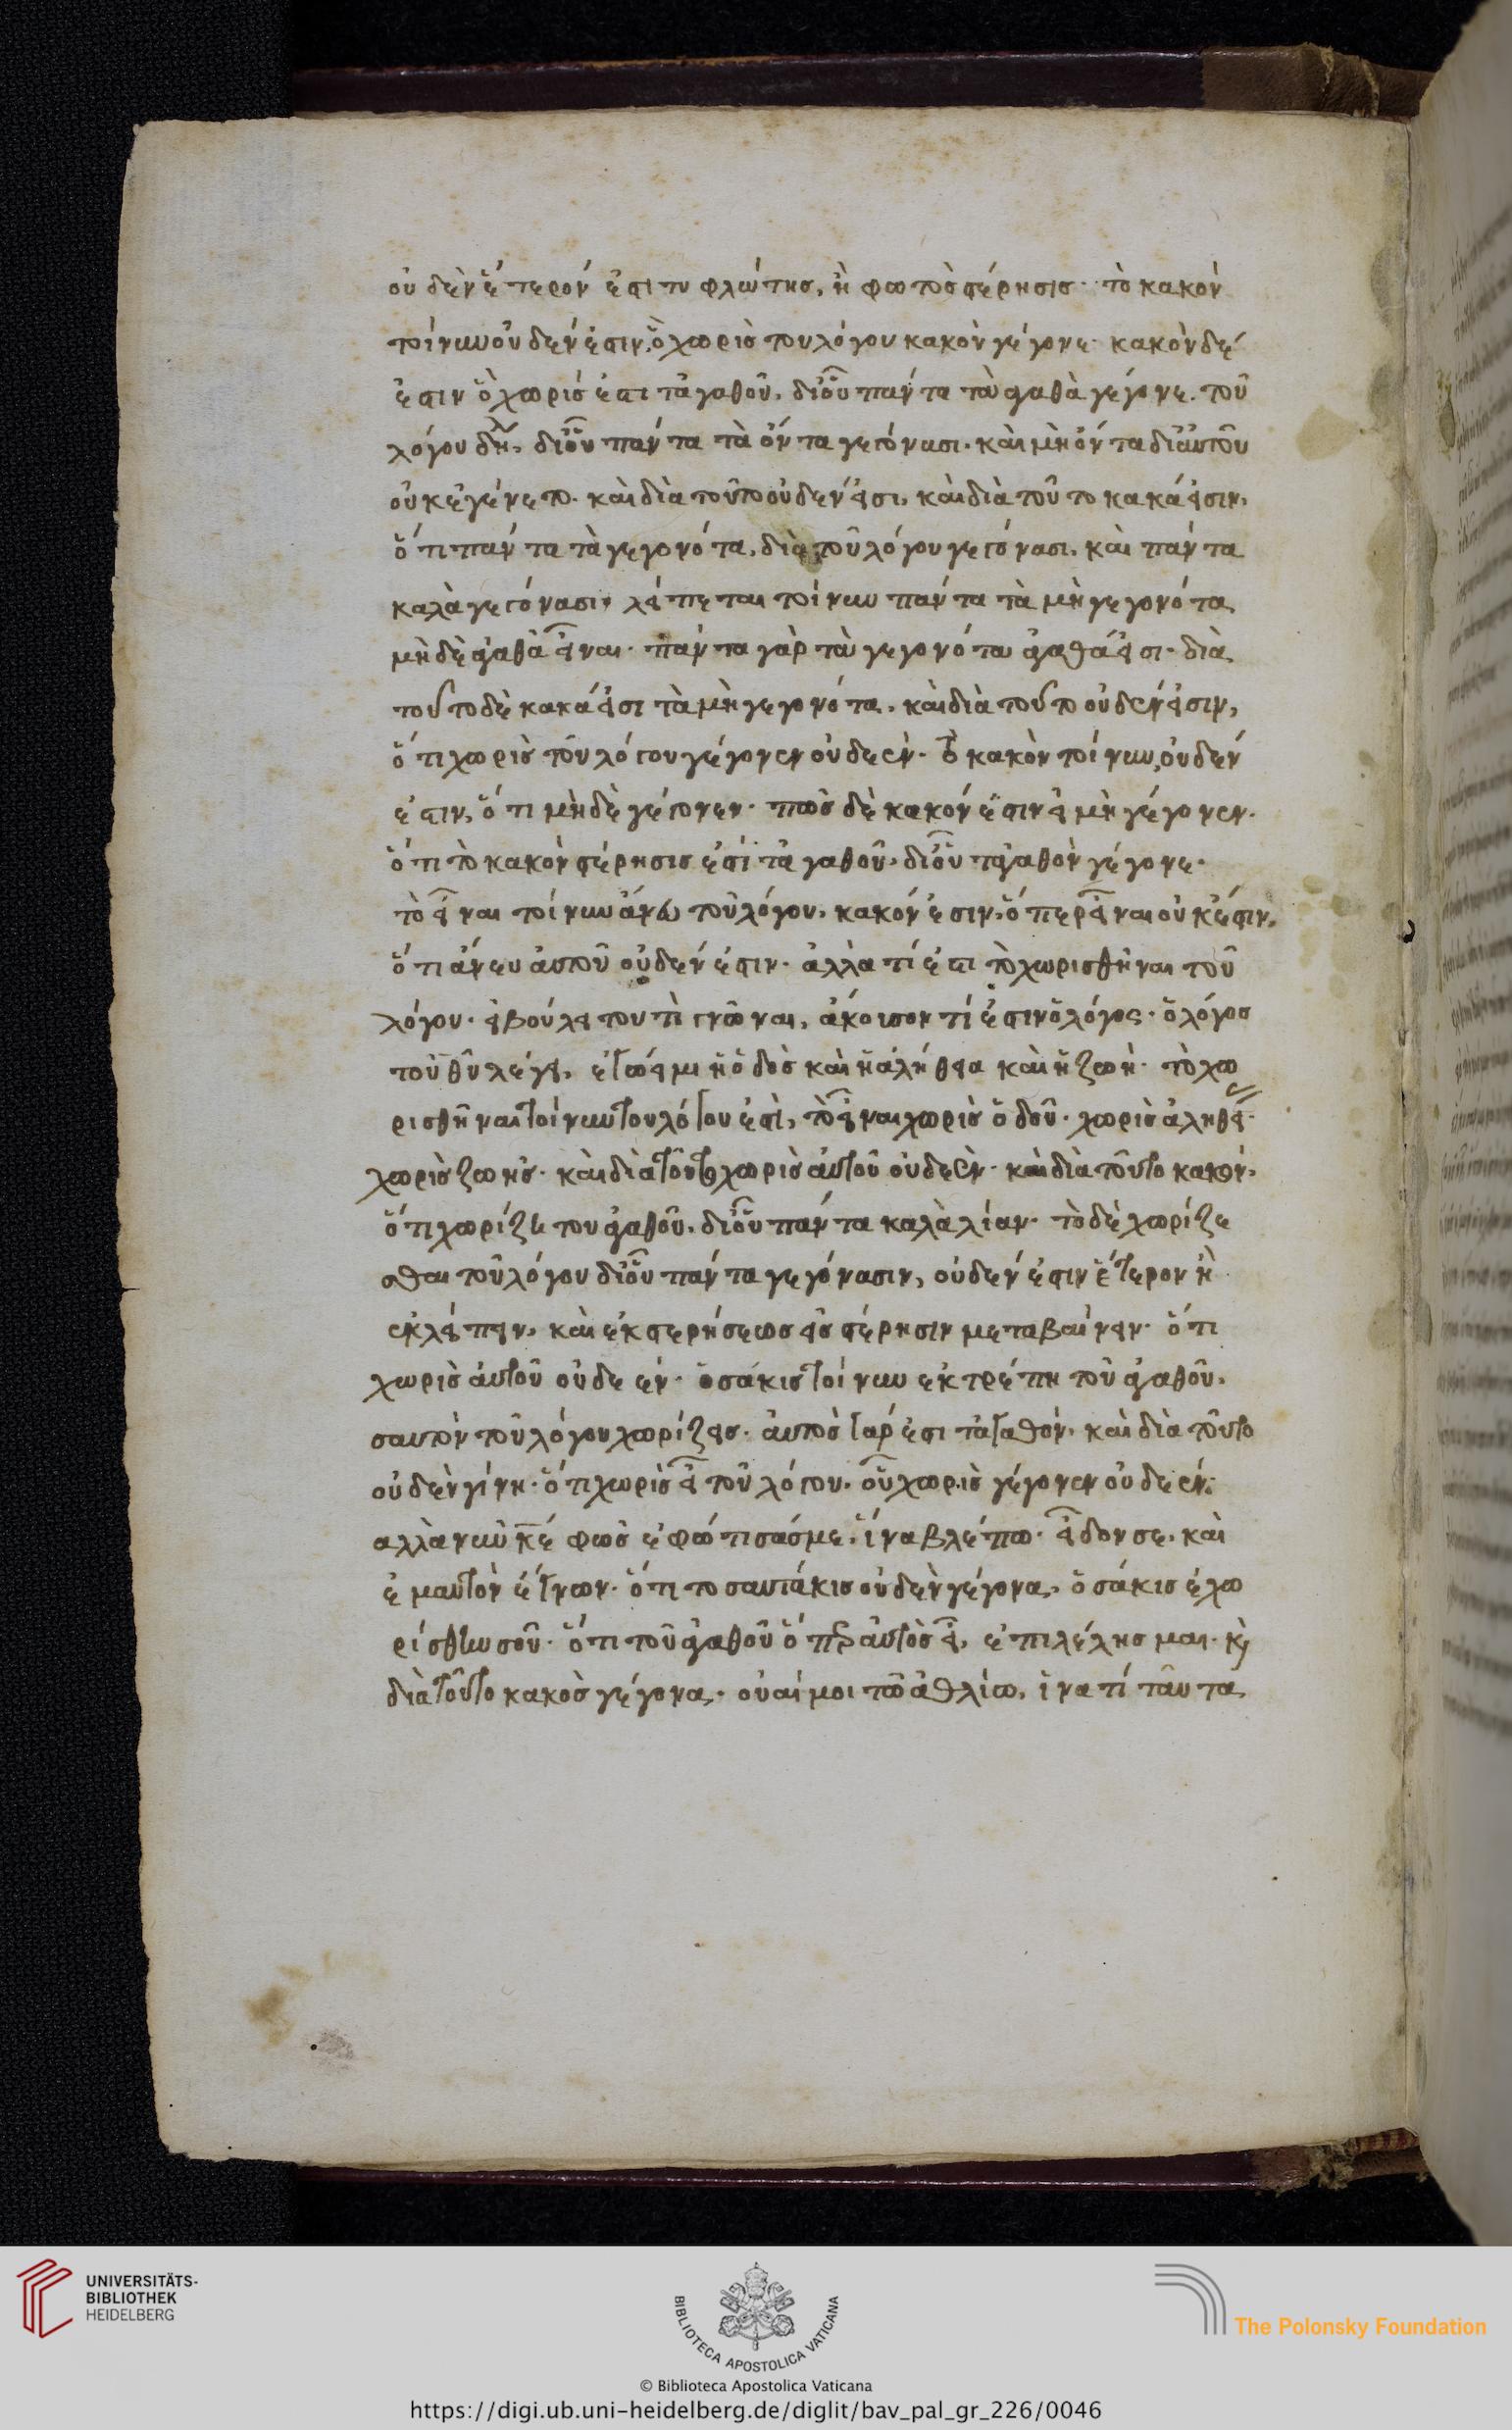 οὐδὲν ἕτερόν ἐστι τυφλώτης, ἢ φωτὸς στέρησις· τὸ κακὸν
τοίνυν οὐδέν ἐστιν, ὃ χωρὶς του λόγου κακὸν γέγονε· κακὸν δέ
ἐστιν ὃ χωρίς ἐστι τἀγαθοῦ, δι οὗ πάντα τὰ ἀγαθὰ γέγονε. τοῦ
λόγου δὴ, δι οὗ πάντα τὰ ὄντα γεγόνασι. καὶ μὴ ὄντα δι αὐτοῦ
οὐκ ἐγένετο. καὶ διὰ τοῦτο οὐδέν εἰσι, καὶ διὰ τοῦτο κακά εἰσιν,
ὅτι πάντα τὰ γεγονότα, διὰ τοῦ λόγου γεγόνασι, καὶ πάντα
καλὰ γεγόνασι, λείπεται τοίνυν πάντα τὰ μὴ γεγονότα
μὴ δὲ ἀγαθὰ εἶναι· πάντα γὰρ τὰ γεγονότα ἀγαθά εἰσι· διὰ
τοῦτο δὲ κακά εἰσι τὰ μὴ γεγονότα, καὶ διὰ τοῦτο οὐδέν εἰσιν,
ὅτι χωρὶς τοῦ λόγου γέγονεν οὐδεέν· τὸ κακὸν τοίνυν, οὐδέν
ἐστιν, ὅτι μὴ δὲ γέγονεν· πῶς δὲ κακόν ἐστιν εἰ μὴ γέγονεν·
ὅτι τὸ κακὸν στέρησις ἐστί τἀγαθοῦ, δι οὗ τἀγαθὸν γέγονε·
τὸ εἶναι τοίνυν ἄνευ τοῦ λόγου, κακόν ἐστιν, ὅπερ εἶναι οὐκ ἔστιν,
ὅτι ἄνευ αὐτοῦ οὐδέν ἐστιν· ἀλλὰ τί ἐστι τὸ χωρισθῆναι τοῦ
λόγου· εἰ βούλει τουτὶ γνῶναι, ἄκουσον τί ἐστιν ὁ λόγος· ὁ λόγος
τοῦ θῦ λέγει, ἐγώ εἰμι ἡ ὁδὸς καὶ ἡ ἀλήθεια καὶ ἡ ζωὴ· τὸ χω
ρισθῆναι τοίνυν του λόγου ἐστὶ, τὸ εἶναι χωρὶς ὁδοῦ· χωρὶς ἀληθεί·
χωρὶς ζωῆς· καὶ διὰ τοῦτο χωρὶς αὐτοῦ οὐδεέν· καὶ διὰ τοῦτο κακόν,
ὅτι χωρίζῃ του ἀγαθοῦ, δι οὗ πάντα καλὰ λίαν· τὸ δὲ χωρίζε
σθαι τοῦ λόγου δι οὗ πάντα γεγόνασιν, οὐδέν ἐστιν ἕτερον ἢ
ἐκλείπειν, καὶ ἐκ στερήσεως εἰς στέρησιν μεταβαίνειν· ὅτι
χωρὶς αὐτοῦ οὐδε ἕν· ὁσάκις τοίνυν ἐκτρέπῃ τοῦ ἀγαθοῦ,
σαυτὸν τοῦ λόγου χωρίζεις· αὐτὸς γάρ ἐστι τἀγαθόν, καὶ διὰ τοῦτο
οὐδὲν γίνῃ· ὅτι χωρὶς εἶ τοῦ λόγου, οὗ χωρὶς γέγονεν οὐδεέν·
ἀλλὰ νῦν κέ φῶς ἐφώτισάς με, ἵνα βλέπω· εἶδον σε, καὶ
ἐμαυτὸν ἔγνων· ὅτι τοσαυτάκις οὐδὲν γέγονα, ὁσάκις ἐχω
ρίσθην σοῦ· ὅτι τοῦ ἀγαθοῦ ὅπερ αὐτὸς εἶ, ἐπιλέλησμαι· κ
διὰ τοῦτο κακὸς γέγονα· οὐαί μοι τῶ ἀθλίω, ἵνα τί ταῦτα
UNIVERSITÄTS-
BIBLIOTHEK
HEIDELBERG
BIBLIOTECA APOSTOLICA VATICANA
The Polonsky Foundation
© Biblioteca Apostolica Vaticana
https://digi.ub.uni-heidelberg.de/diglit/bav_pal_gr_226/0046